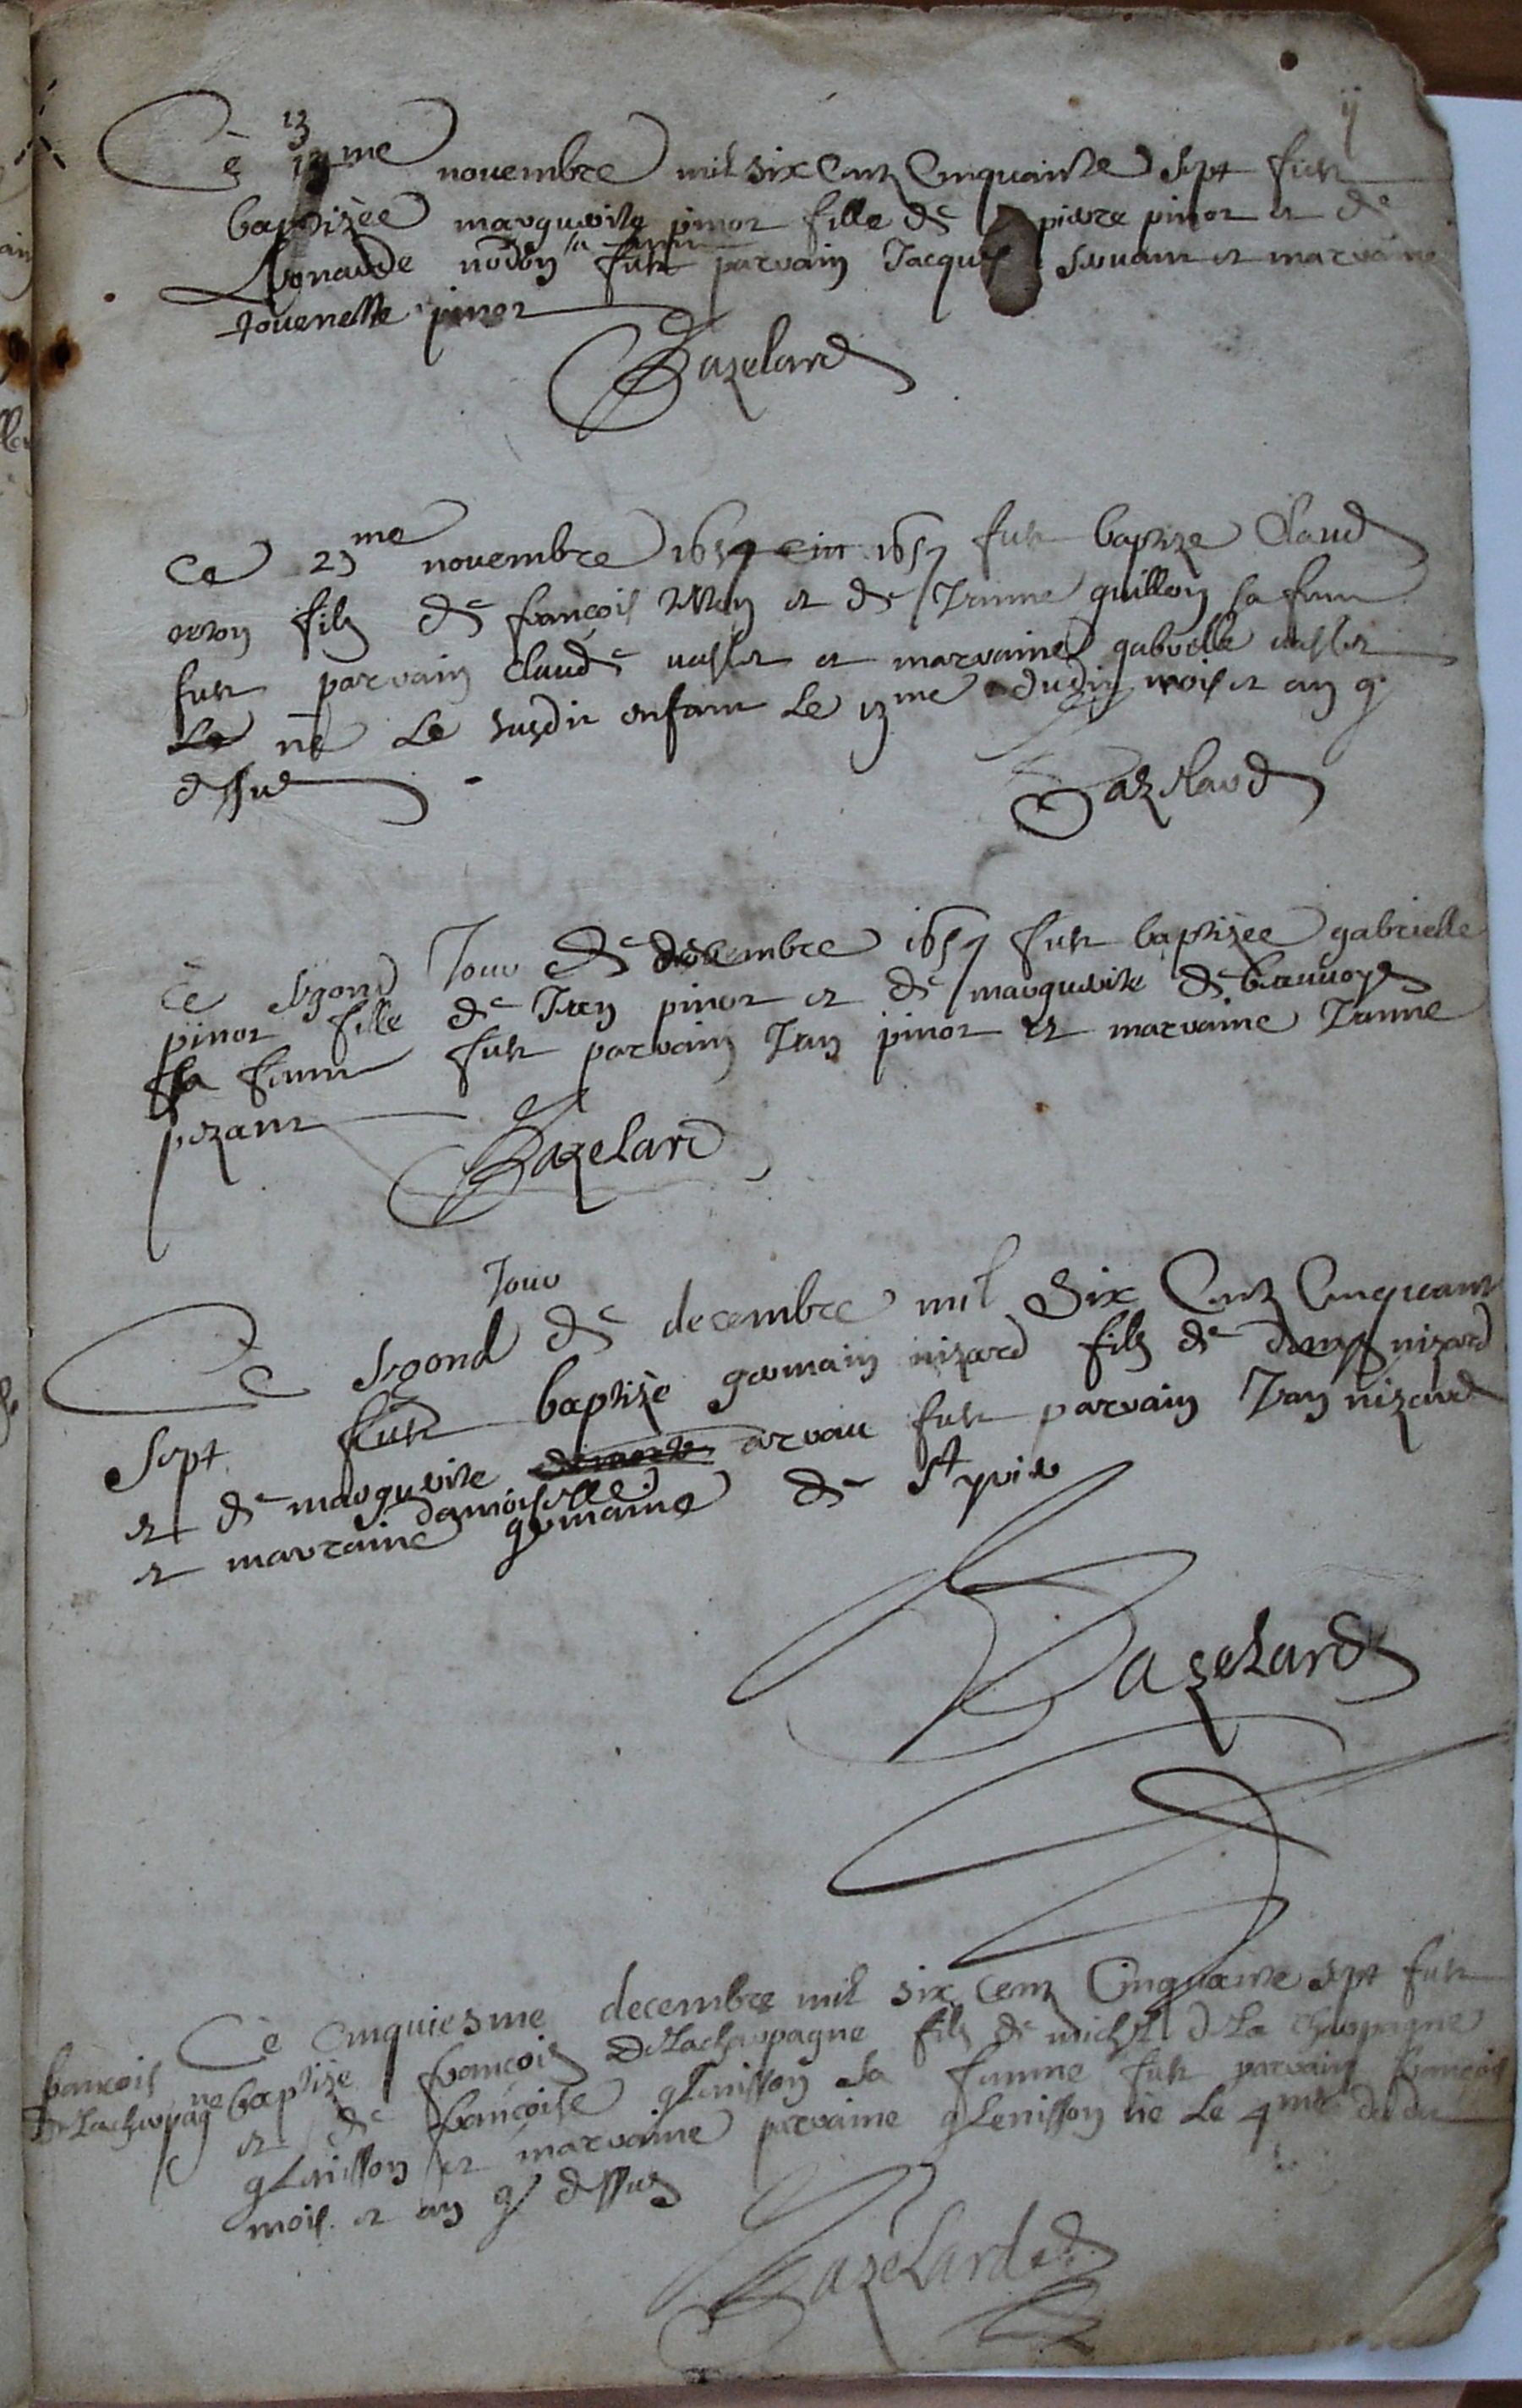 ij
13
Ce me novembre mil six Centz Cinquante Sept fut
baptizée marguerite pinot fille de pierre pinot et de
Leonarde nodon sa femme fut parrain Jacques et marraine
pinot
Bazelard
Ce 23me novembre 1657 1657 fut baptize Claud
filz de françois et de Jeanne guillon sa femme
fut parrain Claude et marraine gabrielle
né Le susdit enfant Le 13me dudit mois et an q
dessus
Bazelard
Ce segond Jour de decembre 1657 fut baptizée gabrielle
pinot fille de Jean pinot et de marguerite de beauvoys
sa femme fut parrain Jean pinot et marraine Jeanne
pezant
Bazelard
Jour
Ce segond de decembre mil Six Centz Cinquante
Sept fut baptizé germain nizard filz de denys nizard
et de marguerite fut parrain Jean nizard
damoiselle
et marraine germaine de St
Bazelard
Ce Cinquiesme decembre mil six Centz Cinquante sept fut
françois
baptizé françois Delachapagne filz de michel de La chapagne
Delachapagne
et de françoise gLenisson sa femme fut parrain françois
gLenisson et marraine gLenisson né Le 4me dudit
mois et an q dessus
Bazelard